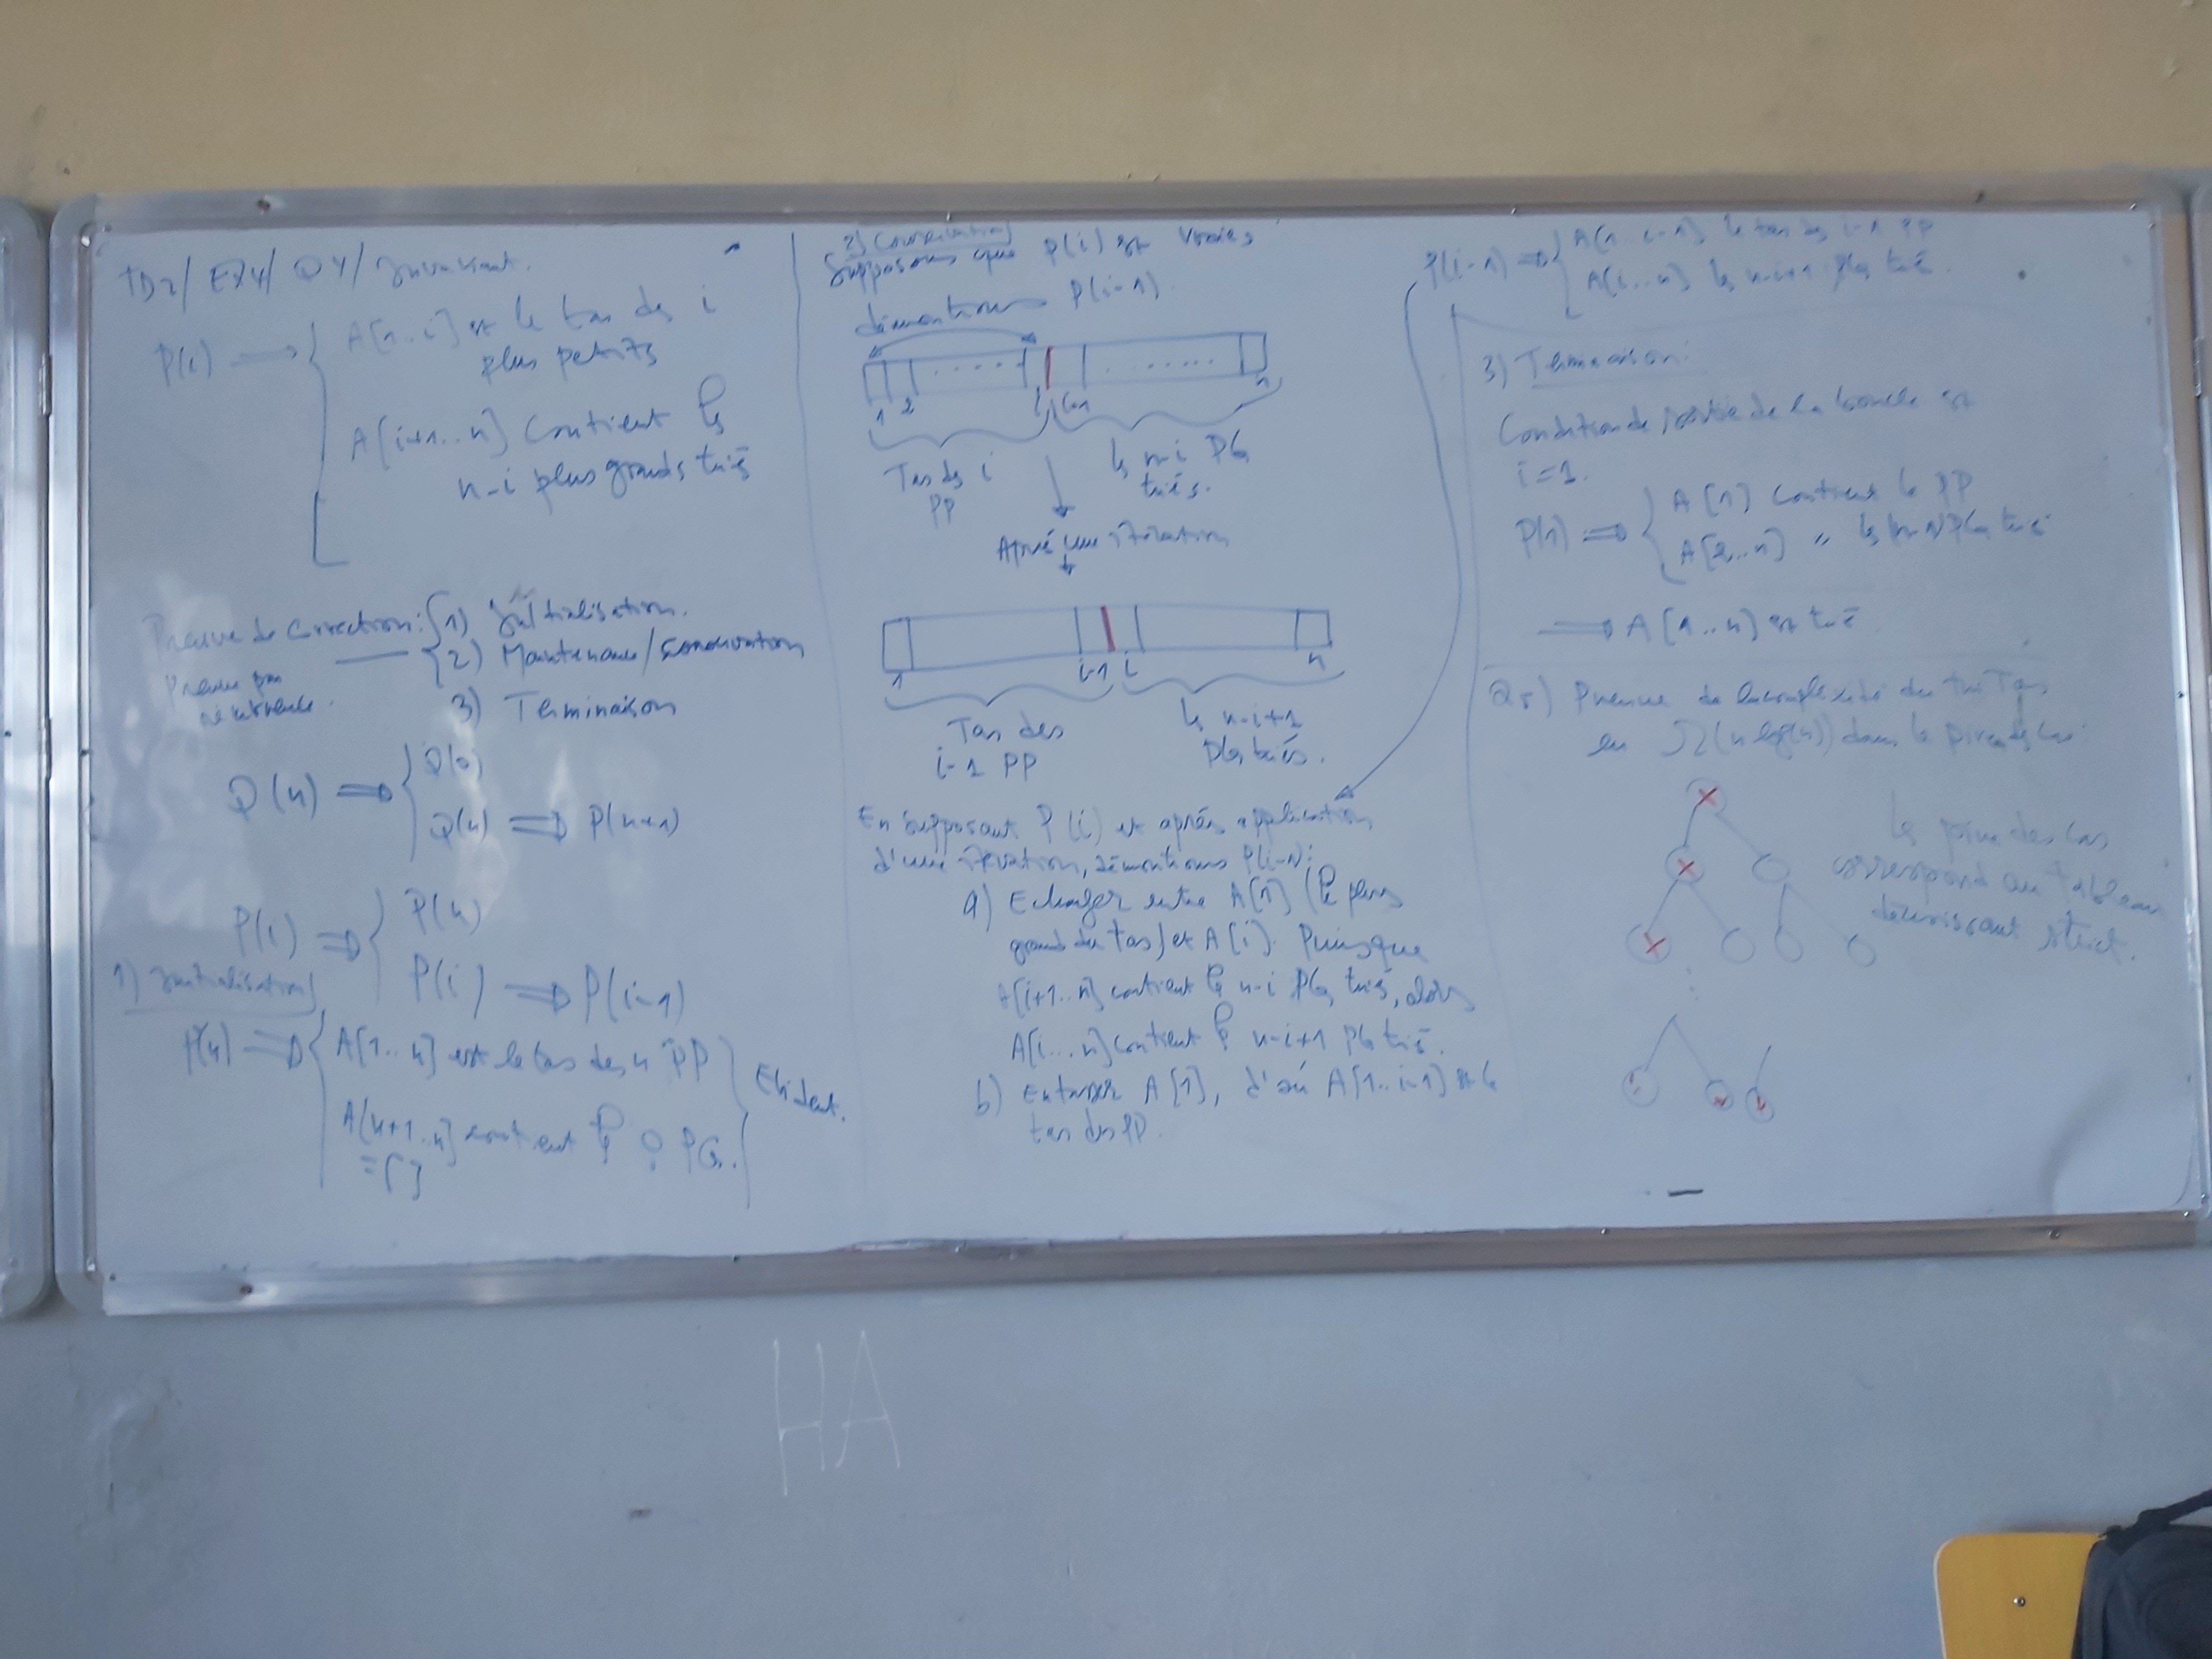 TD2/ EX4/ Q4/ Invariant.
P(i) → { A[1..i] est le tas des i
plus petits
A[i+1..n] contient les
n-i plus grands triés
Preuve de correction: { 1) Initialisation.
2) Maintenance/Conservation
3) Terminaison
Preuve par
récurrence.
Q(n) ⟹ { Q(0)
Q(n) ⟹ P(n+1)
P(i) ⟹ { P(n)
P(i) ⟹ P(i-1)
1) Initialisation
P(n) ⟹ { A[1..n] est le tas des n PP
A[n+1..n] contient les 0 PG.
=[]
} Evident.
2) Conservation
Supposons que P(i) est vraie,
démontrons P(i-1).
1 2 ..... i i+1 ...... n
Tas des i
PP
les n-i PG
triés.
Après une itération
1 i-1 i n
Tas des
i-1 PP
les n-i+1
PG triés.
En supposant P(i) et après application
d'une itération, démontrons P(i-1):
a) Echanger entre A[1] (le plus
grand du tas) et A[i]. Puisque
A[i+1..n] contient les n-i PG triés, alors
A[i...n] contient les n-i+1 PG triés.
b) Entasser A[1], d'où A[1..i-1] est le
tas des PP.
P(i-1) ⟹ { A[1..i-1] le tas des i-1 PP
A[i..n] les n-i+1 PG triés.
3) Terminaison:
Condition de sortie de la boucle est
i=1.
P(1) ⟹ { A[1] contient le PP
A[2..n] " les n-1 PG triés
⟹ A[1..n] est trié.
Q5) Preuve de la complexité du tri Tas
en Ω(n log(n)) dans le pire des cas:
Le pire des cas
correspond au tableau
décroissant strict.
HA